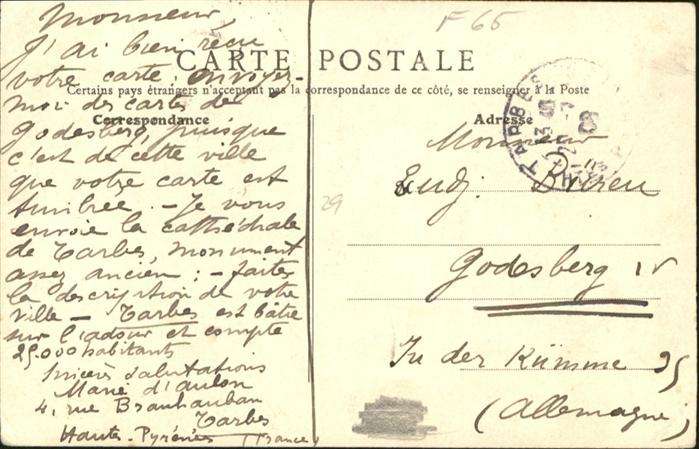 F 65
CARTE POSTALE
Certains pays étrangers n'acceptant pas la correspondance de ce côté, se renseigner à la Poste
Correspondance
Monsieur,
J'ai bien reçu
votre carte; envoyez-
moi des cartes de
Godesberg, puisque
c'est de cette ville
que votre carte est
timbrée. - Je vous
envoie la cathédrale
de Tarbes, monument
assez ancien; - faites
la description de votre
ville - Tarbes est bâtie
sur l'adour et compte
25.000 habitants
Sincères salutations
Marie d'aulon
4, rue Brauhauban
Tarbes
Hautes-Pyrénées (France)
29
Adresse
TARBES
Monsieur
Godesberg
In der Kümme 25
(Allemagne)